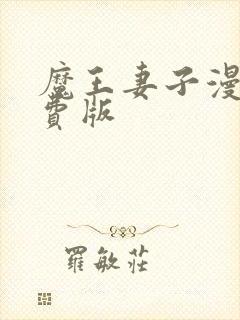 魔王妻子漫
费版
羅敏莊